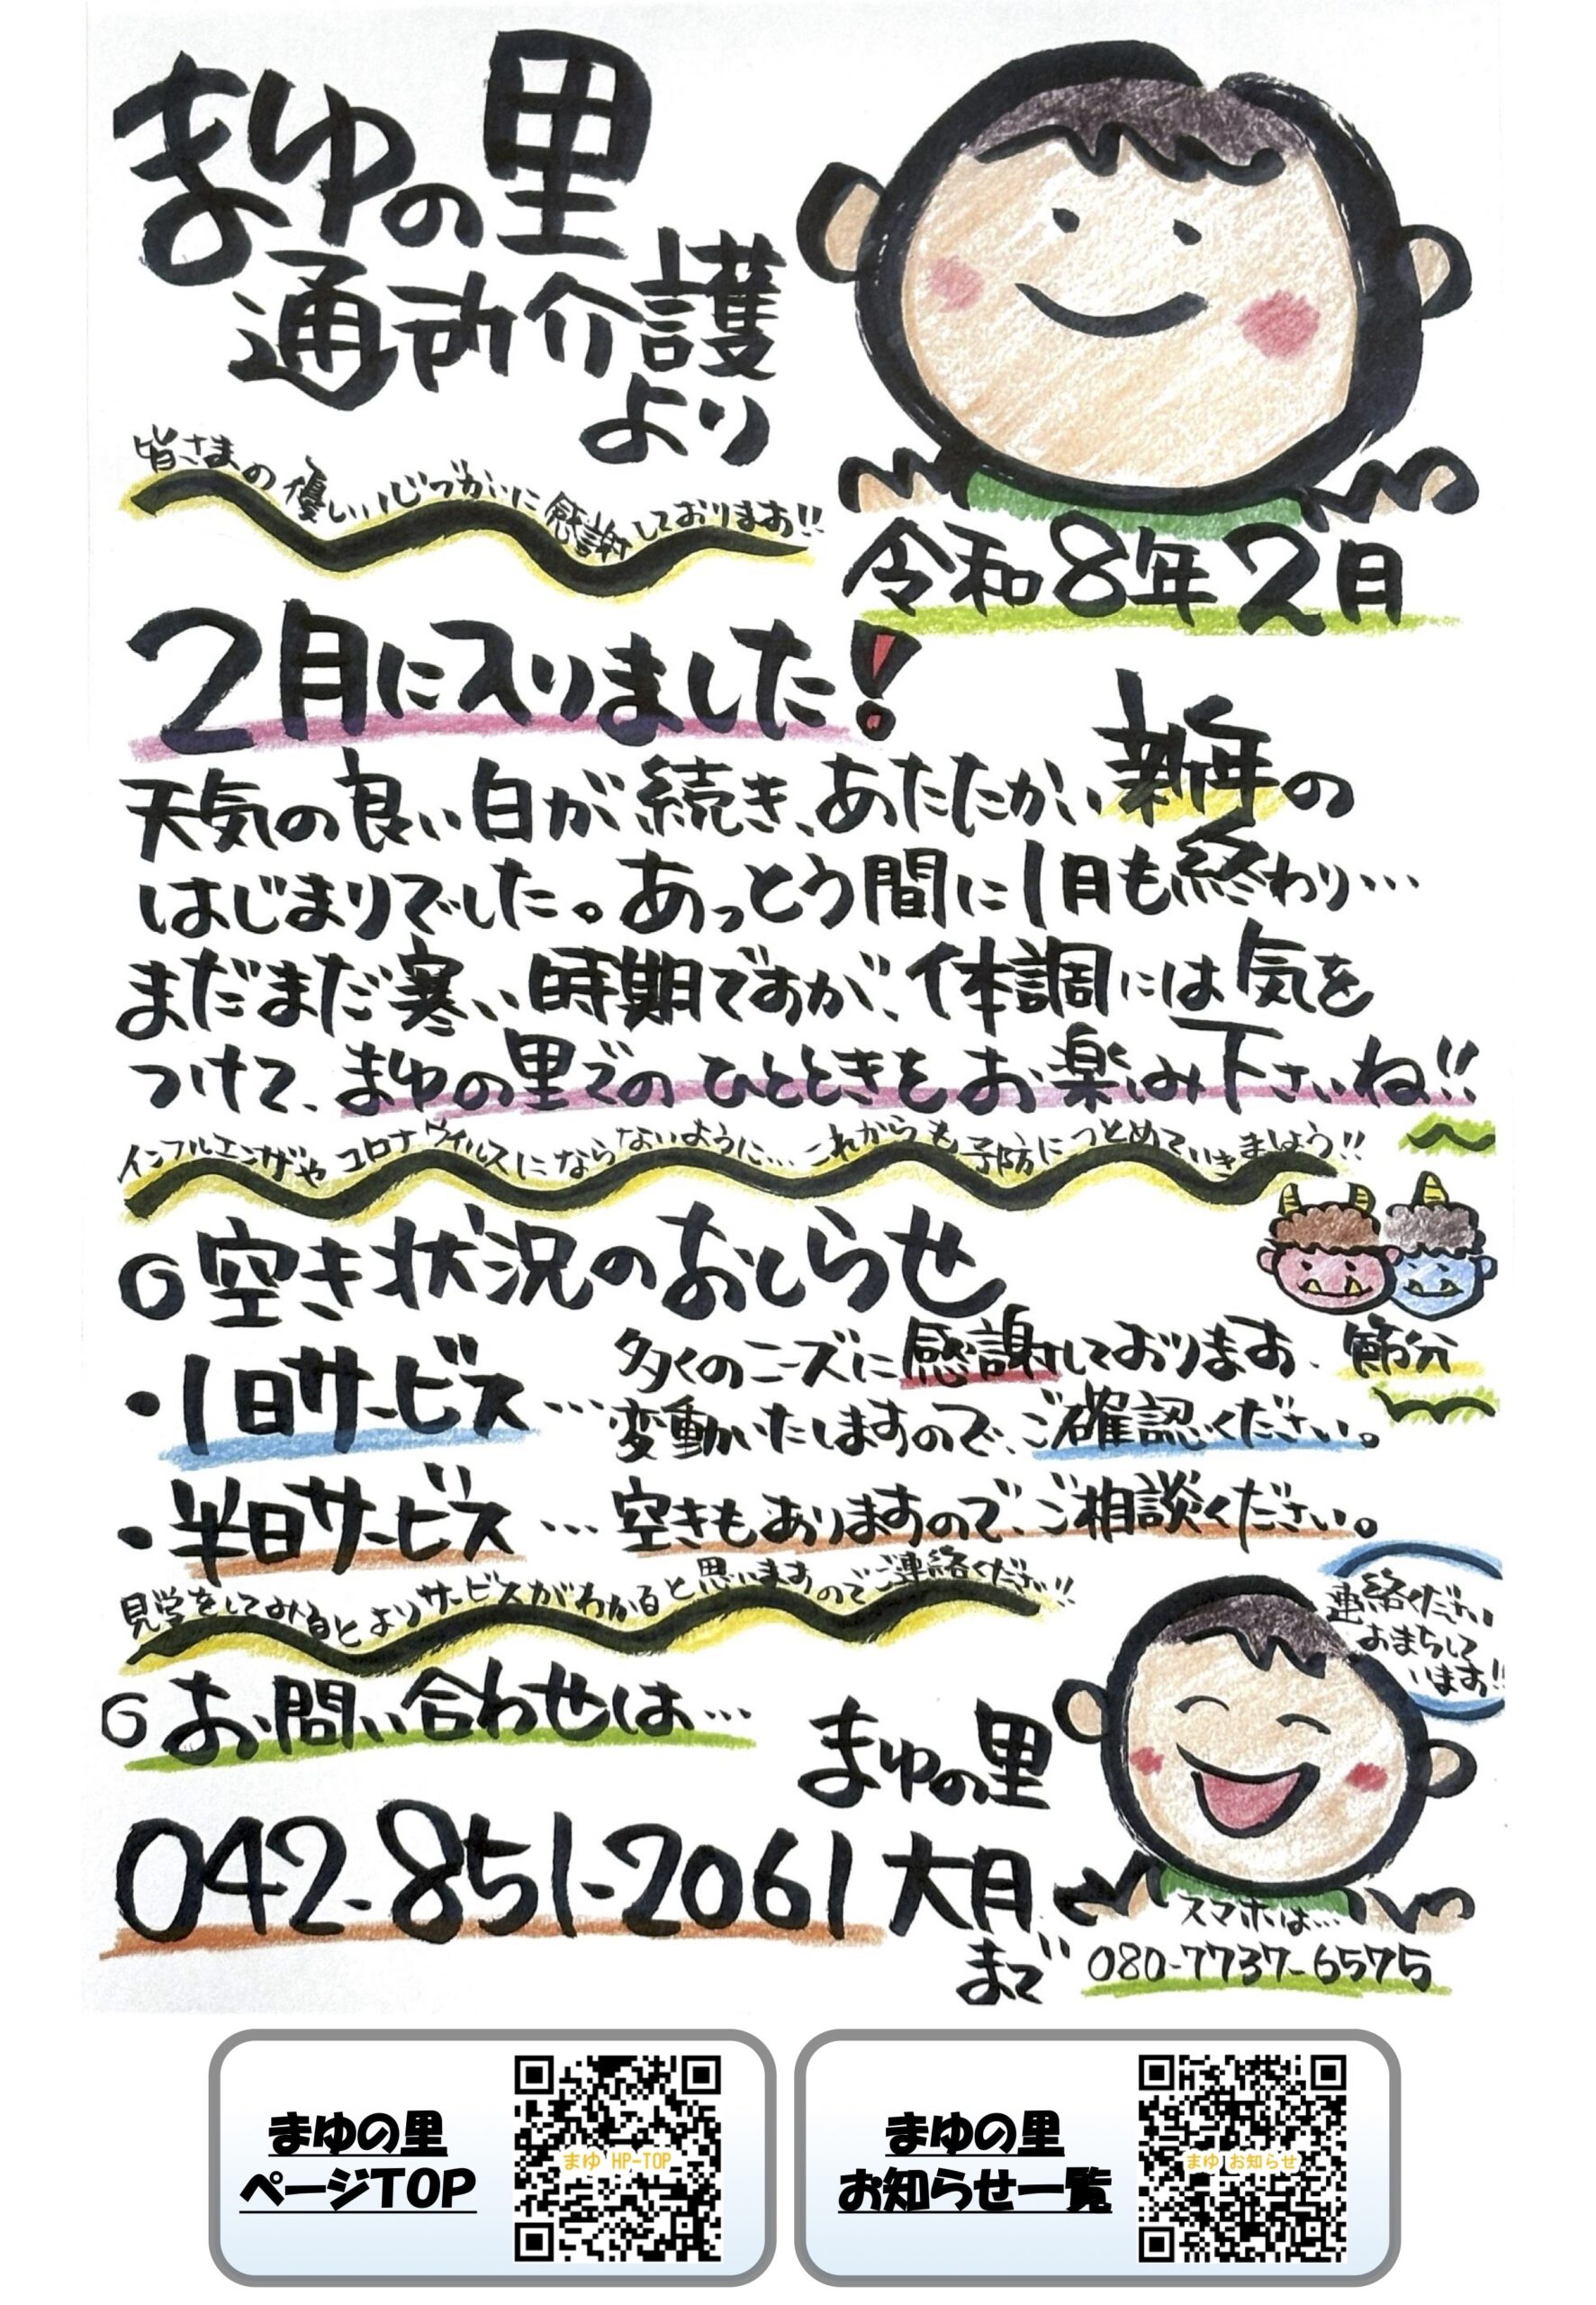 まゆの里
通所介護
より
皆さまの優しい心づかいに感謝しております!!
令和8年2月
2月に入りました!
天気の良い日が続き、あたたかい新年の
はじまりでした。あっとう間に1月も終わり…
まだまだ寒い時期ですが、体調には気を
つけて、まゆの里でのひとときをお楽しみ下さいね!!
インフルエンザやコロナウイルスにならないように…これからも予防につとめていきましょう!!
◎空き状況のおしらせ
・1日サービス…多くのニーズに感謝しております。
変動いたしますので、ご確認ください。
節分
・半日サービス…空きもありますので、ご相談ください。
見学をしてみるとよりサービスがわかると思いますのでご連絡ください!!
連絡ください
おまちして
います!!
◎お問い合わせは…
まゆの里
042-851-2061 大月
まで
スマホは…
080-7737-6575
まゆの里
ページTOP
まゆ HP-TOP
まゆの里
お知らせ一覧
まゆ お知らせ